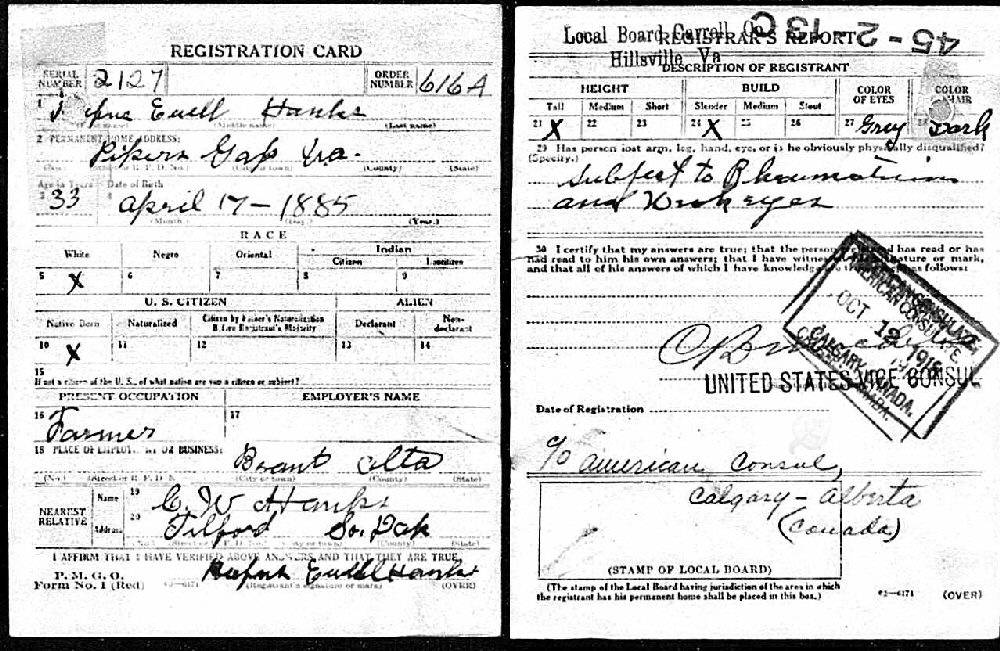 REGISTRATION CARD
SERIAL NUMBER 2127 ORDER NUMBER 616A
1 Euell Hanks
(Middle name) (Last name)
2 PERMANENT HOME ADDRESS:
Pipers Gap Va.
(No.) (Street or R. F. D. No.) (City or town) (County) (State)
Age in Years Date of Birth
33 April 17 - 1885
(Month.) (Day.) (Year.)
RACE
White Negro Oriental Indian
Citizen Noncitizen
5 X 6 7 8 9
U. S. CITIZEN ALIEN
Native Born Naturalized Citizen by Father's Naturalization Before Registrant's Majority Declarant Non-declarant
10 X 11 12 13 14
15
If not a citizen of the U. S., of what nation are you a citizen or subject?
PRESENT OCCUPATION EMPLOYER'S NAME
16 Farmer 17
18 PLACE OF EMPLOYMENT OR BUSINESS:
Brant Alta
(No.) (Street or R. F. D. No.) (City or town) (County) (State)
NEAREST RELATIVE Name 19 C. W. Hanks
Address 20 Tilford So. Dak
(No.) (Street or R. F. D. No.) (City or town) (County) (State)
I AFFIRM THAT I HAVE VERIFIED ABOVE ANSWERS AND THAT THEY ARE TRUE.
P. M. G. O.
Form No. 1 (Red) Euell Hanks
(Registrant's signature or mark) (OVER)
45-2-13 C
Local Board Carroll Co
REGISTRAR'S REPORT
Hillsville Va
DESCRIPTION OF REGISTRANT
HEIGHT BUILD COLOR OF EYES COLOR OF HAIR
Tall Medium Short Slender Medium Stout
21 X 22 23 24 X 25 26 27 Grey 28 Dark
29 Has person lost arm, leg, hand, eye, or is he obviously physically disqualified?
(Specify.)
Subject to Rheumatism
and Weak eyes
30 I certify that my answers are true; that the person registered has read or has
had read to him his own answers; that I have witnessed his signature or mark,
and that all of his answers of which I have knowledge are true, except as follows:
AMERICAN CONSULATE
OCT 12 1918
CALGARY, CANADA.
UNITED STATES VICE CONSUL
Date of Registration
c/o American Consul,
Calgary - Alberta
(Canada)
(STAMP OF LOCAL BOARD)
(The stamp of the Local Board having jurisdiction of the area in which
the registrant has his permanent home shall be placed in this box.)
03-6171 (OVER)